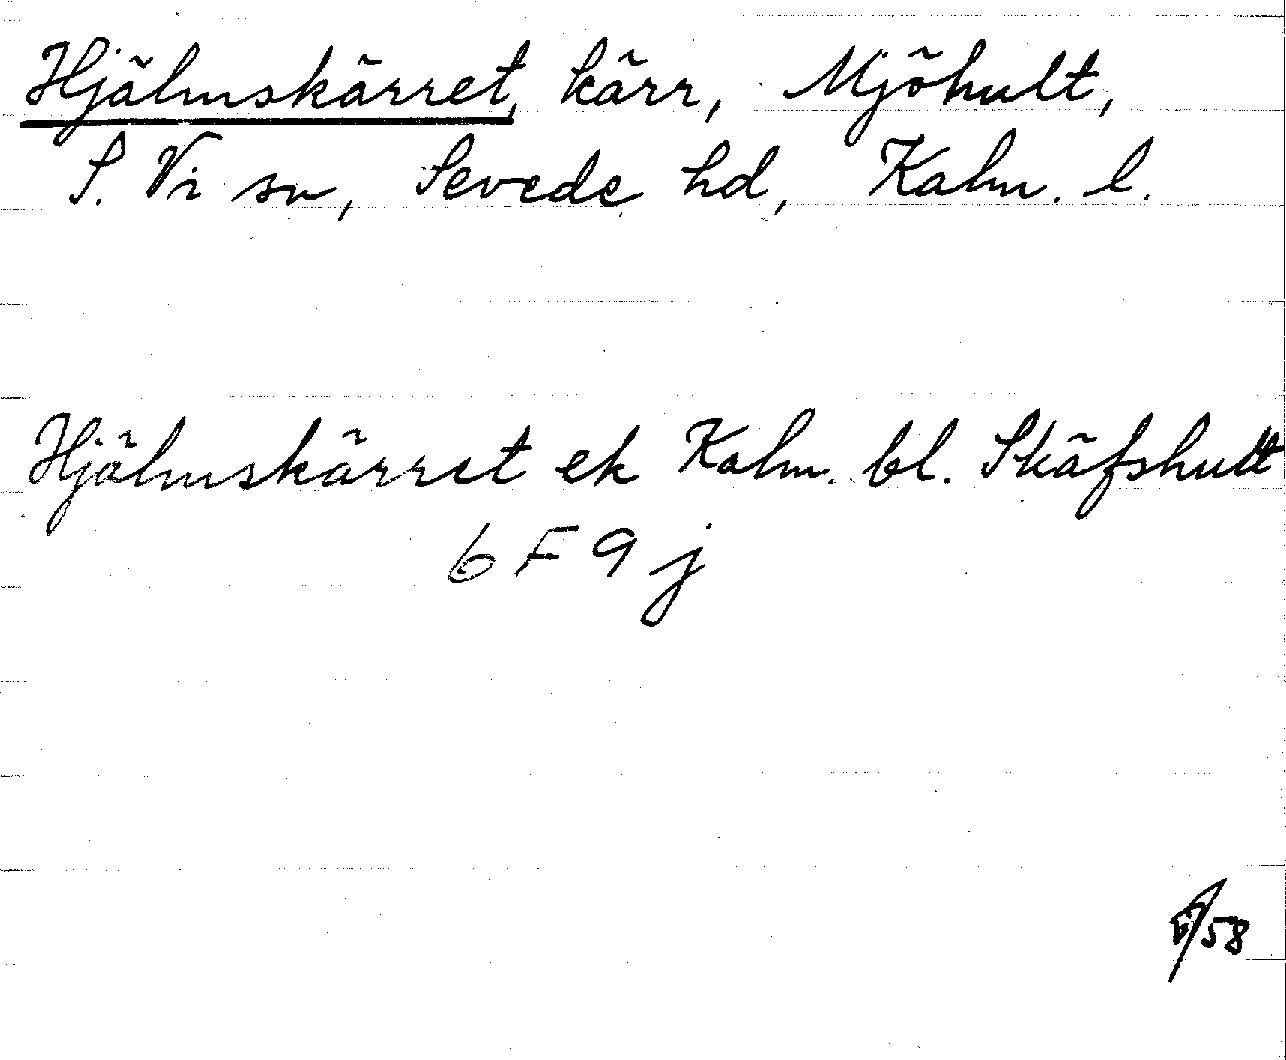 Hjälmskärret, kärr, Mjöhult,
S. Vi sn, Sevede hd, Kalm. l.
Hjälmskärret ek Kalm. bl. Skäfshult
6 F 9 j
/58